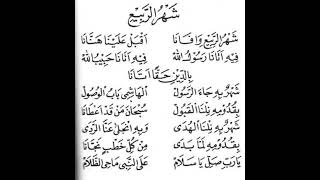 شَهْرُ الرَّبِيْعِ
شَهْرُ الرَّبِيْعِ وَافَانَا اَقْبَلْ عَلَيْنَا هَنَّانَا
فِيْهِ اَتَانَا رَسُوْلُ الله فِيْهِ اَتَانَا حَبِيْبُ الله
بِالدِّيْنِ حَقًّا اَتَانَا
شَهْرٌ بِهِ جَاءَ الرَّسُوْلْ اَلْهَاشِمِى بَابُ الْوُصُوْلْ
بِقُدُوْمِهِ نِلْنَا الْقَبُوْلْ سُبْحَانَ مَنْ قَدْ اَعْطَانَا
شَهْرٌ بِهِ نِلْنَا الْهُدَى وَبِهِ انْجَلَى عَنَّا الرَّدَى
بِقُدُوْمِهِ لَمَّا بَدَى مِنْ كُلِّ خَطْبٍ نَجَّانَا
يَارَبِّ صَلِّى يَا سَلَامْ عَلَى النَّبِى مَاحِى الظَّلَامْ